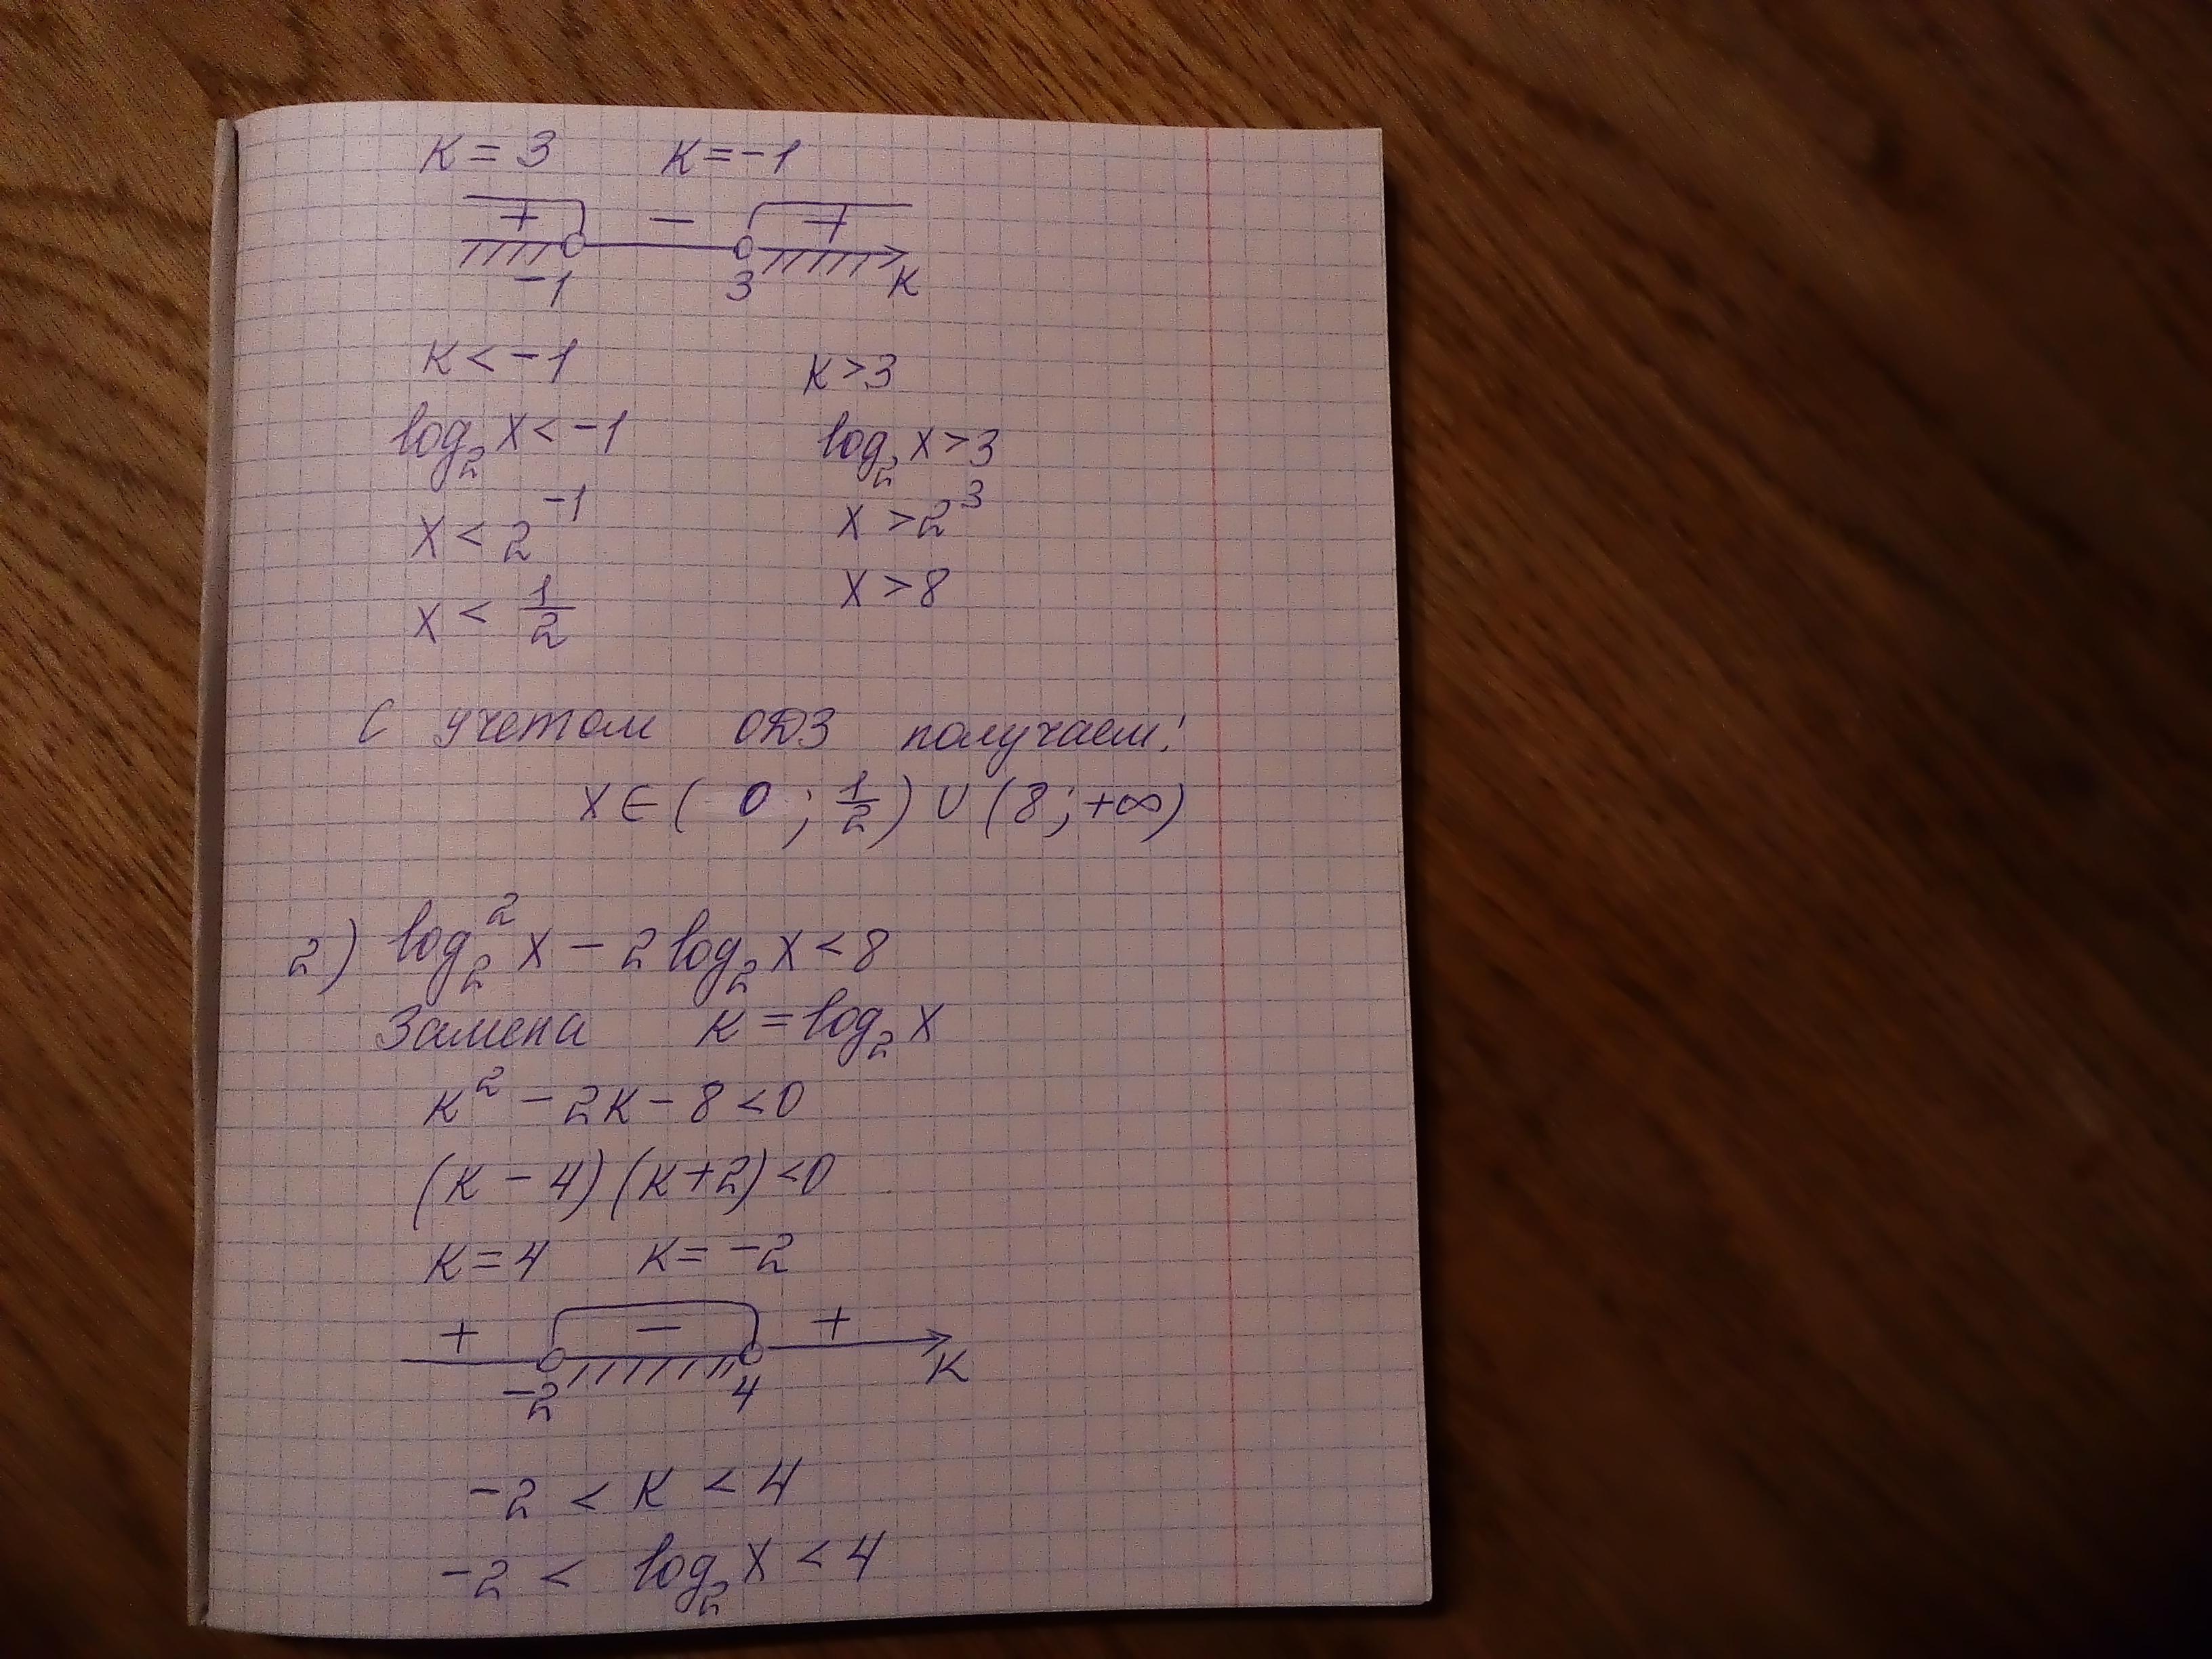 K = 3 K = -1
+ - +
-1 3 K
K < -1 K > 3
log₂ X < -1 log₂ X > 3
X < 2⁻¹ X > 2³
X < 1/2 X > 8
С учетом ОДЗ получаем:
X ∈ ( 0 ; 1/2 ) ∪ ( 8 ; +∞)
2) log₂² X - 2 log₂ X < 8
Замена K = log₂ X
K² - 2K - 8 < 0
(K - 4) (K + 2) < 0
K = 4 K = -2
+ - +
-2 4 K
-2 < K < 4
-2 < log₂ X < 4